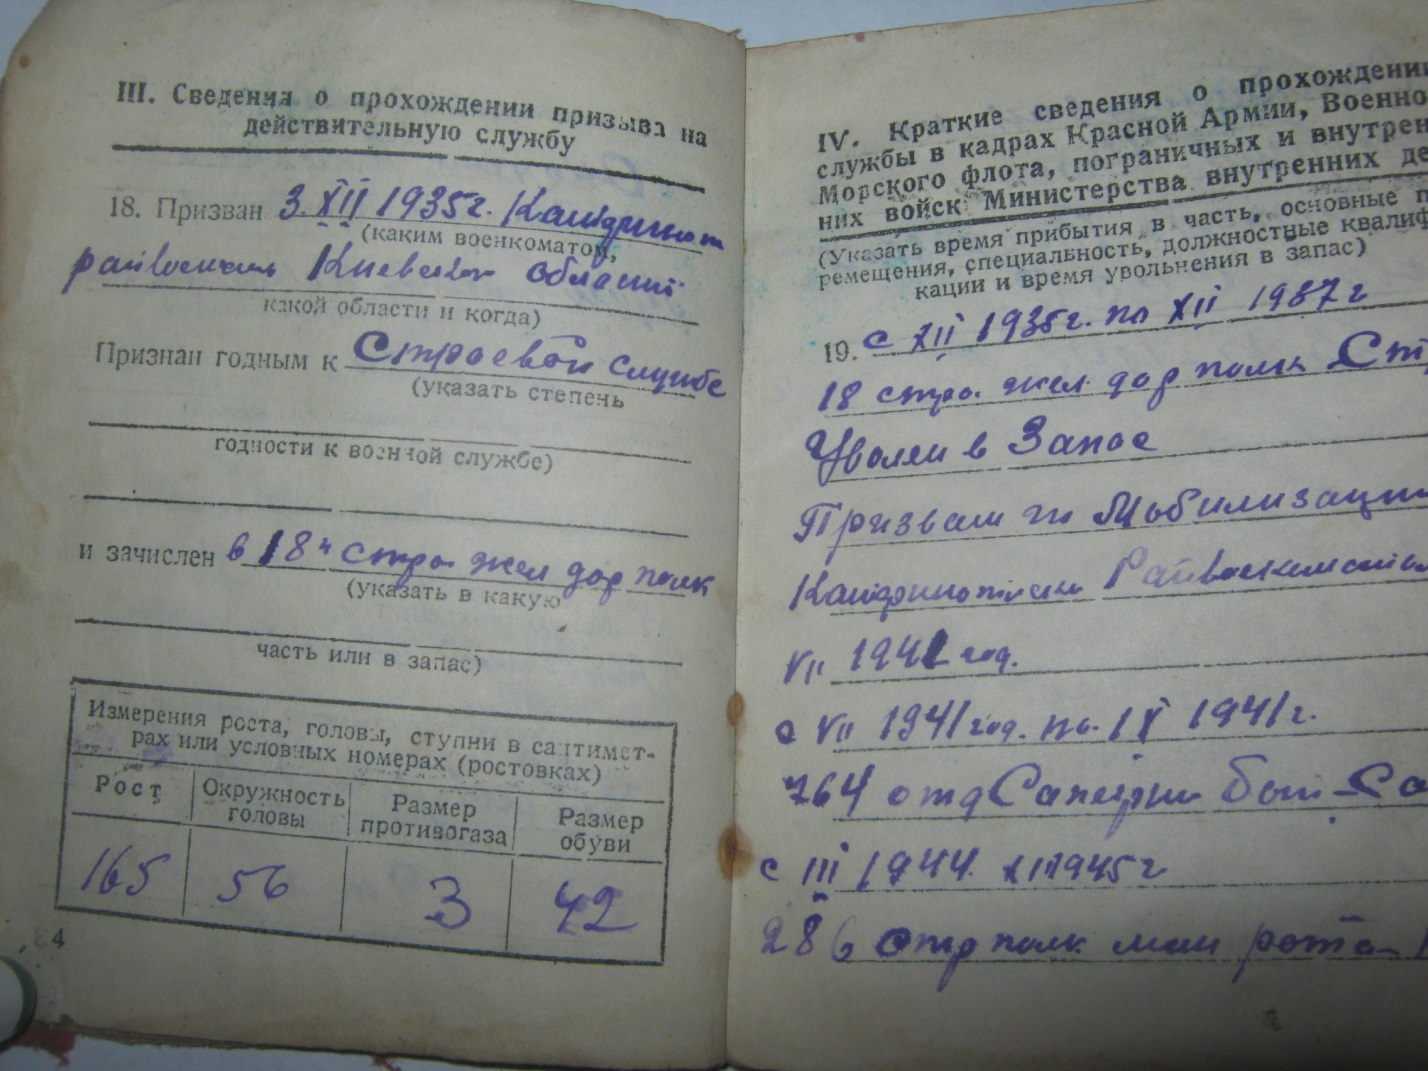 III. Сведения о прохождении призыва на
действительную службу
18. Призван 3. XII 1935 г.
(каким военкоматом,
Киевской области
какой области и когда)
Признан годным к Строевой службе
(указать степень
годности к военной службе)
и зачислен в 18й стро. жел дор полк
(указать в какую
часть или в запас)
Измерения роста, головы, ступни в сантимет-
рах или условных номерах (ростовках)
Рост Окружность головы Размер противогаза Размер обуви
165 56 3 42
4
IV. Краткие сведения о прохождении
службы в кадрах Красной Армии, Военно-
Морского флота, пограничных и внутрен-
них войск Министерства внутренних де
(Указать время прибытия в часть, основные п
ремещения, специальность, должностные квалиф
кации и время увольнения в запас)
19. С XII 1935 г. по XII 1937 г
18 стро. жел. дор полк Ст
Уволен в Запас
Призван по Мобилизаци
VII 1941 год.
с VII 1941 год. по. IX 1941 г.
764 отд Саперн бат Са
с III 1944. 1945 г
286 стр полк мин рота